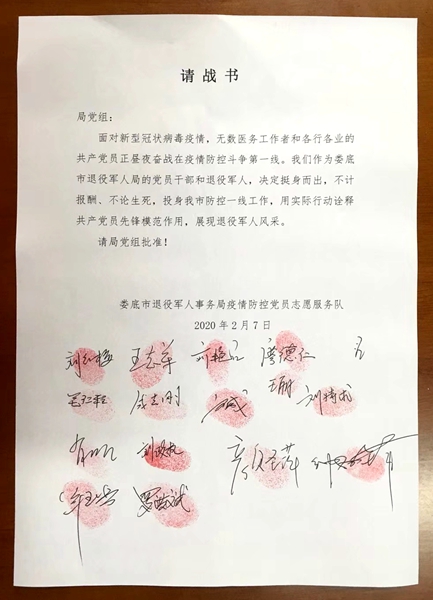 请战书
局党组：
面对新型冠状病毒疫情，无数医务工作者和各行各业的
共产党员正昼夜奋战在疫情防控斗争第一线。我们作为娄底
市退役军人局的党员干部和退役军人，决定挺身而出，不计
报酬、不论生死，投身我市防控一线工作，用实际行动诠释
共产党员先锋模范作用，展现退役军人风采。
请局党组批准！
娄底市退役军人事务局疫情防控党员志愿服务队
2020 年 2 月 7 日
王志军 廖德仁